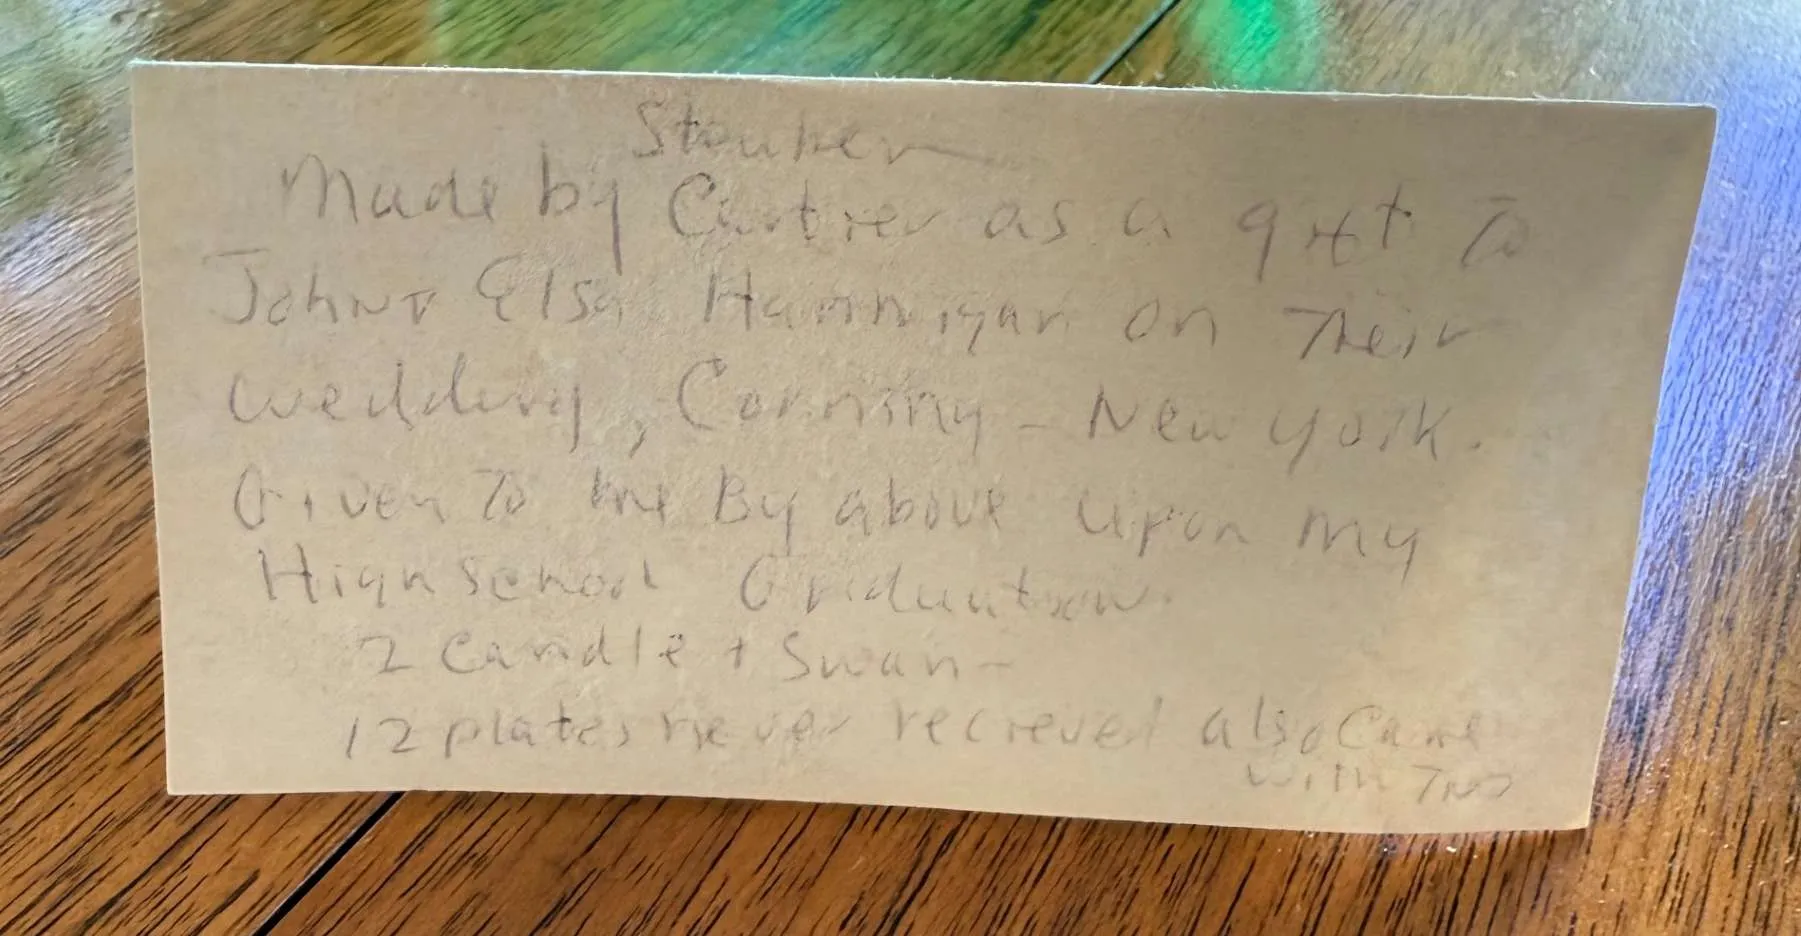 Steuben
Made by Carteer as a gift To
John + Elsa Hannigan on Their
wedding, Corning - New York.
Given To me By above upon my
High School Graduation.
2 Candle + Swan -
12 plates never recieved also Came
with